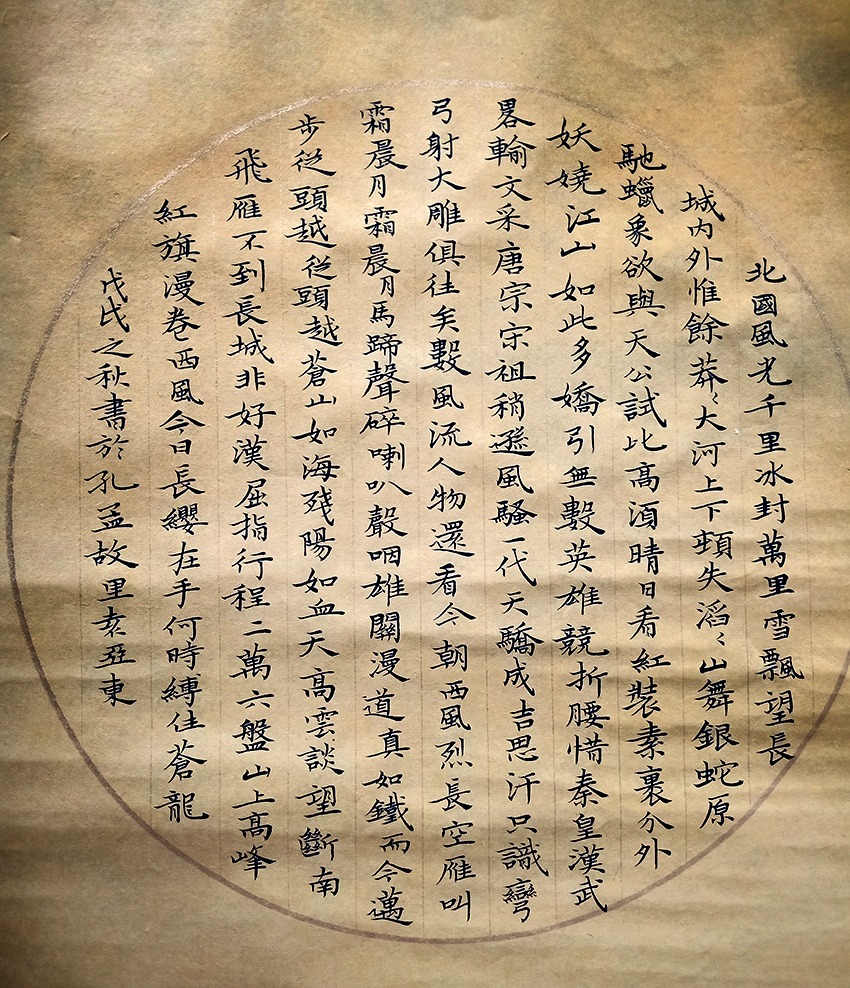 北國風光千里冰封萬里雪飄望長
城内外惟餘莽〻大河上下頓失滔〻山舞銀蛇原
馳蠟象欲與天公試比高湏晴日看紅裝素裹分外
妖嬈江山如此多嬌引無數英雄競折腰惜秦皇漢武
畧輸文采唐宗宋祖稍遜風騷一代天驕成吉思汗只識彎
弓射大雕俱往矣數風流人物還看今朝西風烈長空雁叫
霜晨月霜晨月馬蹄聲碎喇叭聲咽雄關漫道真如鐵而今邁
步從頭越從頭越蒼山如海殘陽如血天高雲談望斷南
飛雁不到長城非好漢屈指行程二萬六盤山上高峰
紅旗漫卷西風今日長纓在手何時縛住蒼龍
戊戌之秋書於孔孟故里袁亞東